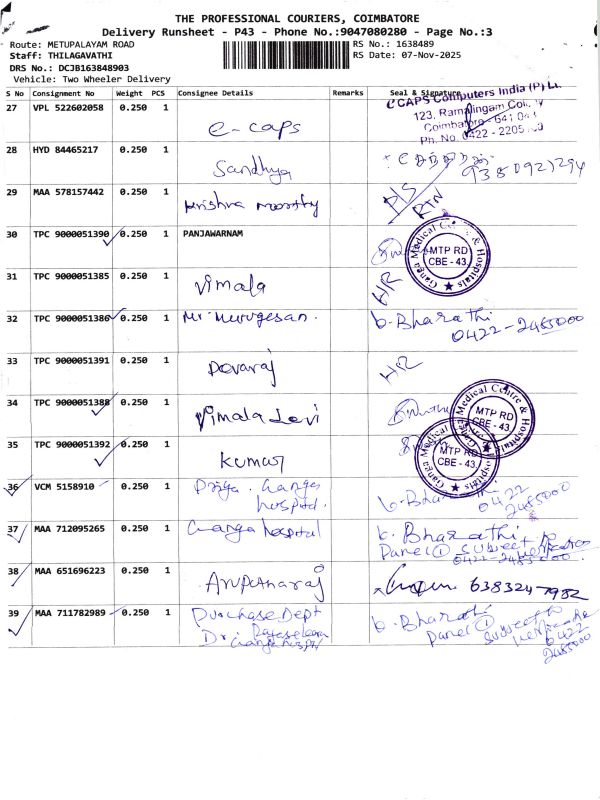 THE PROFESSIONAL COURIERS, COIMBATORE
Delivery Runsheet - P43 - Phone No.:9047080280 - Page No.:3
Route: METUPALAYAM ROAD RS No.: 1638489
Staff: THILAGAVATHI RS Date: 07-Nov-2025
DRS No.: DCJB163848903
Vehicle: Two Wheeler Delivery
S No Consignment No Weight PCS Consignee Details Remarks Seal & Signature
27 VPL 522602058 0.250 1 e-caps
e CAPS Computers India (P) Lt
123, Ramalingam Colony
Coimbatore - 641 04
Ph. No. 0422 - 2205
28 HYD 84465217 0.250 1 Sandhya 9380921294
29 MAA 578157442 0.250 1 Krishna moorthy P/S
RTN
30 TPC 9000051390 0.250 1 PANJAWARNAM
Ganga Medical Centre & Hospitals
MTP RD
CBE - 43
31 TPC 9000051385 0.250 1 Vimala H/R
32 TPC 9000051386 0.250 1 Mr. Murugesan. b. Bharathi
0422-2485000
33 TPC 9000051391 0.250 1 Devaraj H/R
34 TPC 9000051388 0.250 1 Vimala Devi
Ganga Medical Centre & Hospitals
MTP RD
CBE - 43
35 TPC 9000051392 0.250 1 Kumar
Ganga Medical Centre & Hospitals
MTP RD
CBE - 43
36 VCM 5158910 0.250 1 Priya. Ganga
hospital. b. Bharathi 0422
2485000
37 MAA 712095265 0.250 1 Ganga hospital b. Bharathi
Panel ① Subject to
Verification
0422-2485000
38 MAA 651696223 0.250 1 Arputharaj 638324-7982
39 MAA 711782989 0.250 1 Purchase Dept b. Bharathi
Dr. Rajasekaran Panel ① Subject to
Ganga hospital 0422
2485000